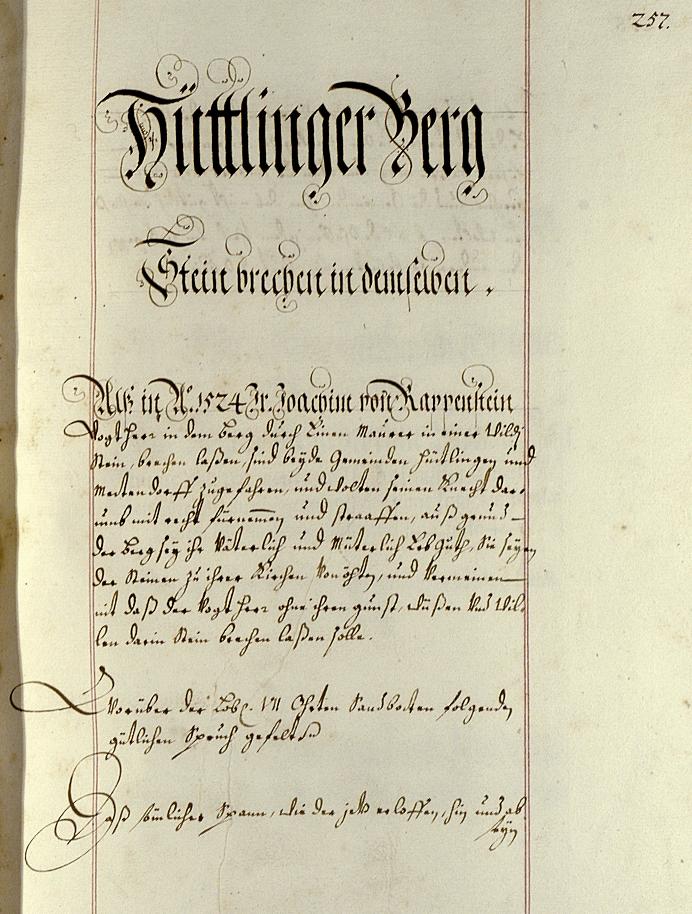 257.
Hüttlinger Berg
Stein brechen in demselben.
Alß in Aº. 1524 Jr. Joachim von Rappenstein
Vogtherr in dem Berg durch Einen Maurer in einer Wildj
Stein, brechen laßen, sind beÿde Gemeinden Hüttlingen und
Mettendorff zugefahren, und wolten seinen Knecht dar-
umb mit recht fürnemmen und straaffen, auß grund
der Berg seÿ ihr Väterlich und Müterlich Erbguth, Sie seÿen
der Steinen zu ihrer Kirchen vonöhten, und vermeinen
nit daß der Vogtherr ohne ihren gunst, wüßen und Wil-
len darin Stein brechen laßen solle.
Worüber der Lobl. VII Ohrten Sandbotten folgenden
gütlichen Spruch gefelt
Daß sömlicher Spann, wie der jetz erloffen, hin und ab
seÿn